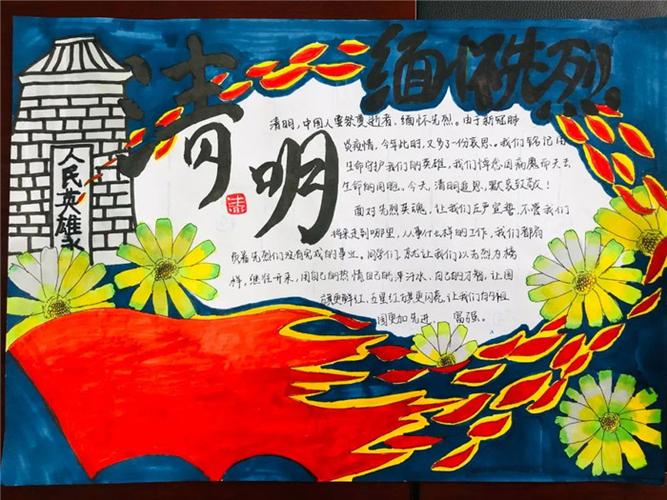 缅怀先烈
清明
人民英雄永
清明，中国人重祭奠逝者，缅怀先烈。由于新冠肺
炎疫情，今年此时，又多了一份哀思。我们铭记用
生命守护我们的英雄，我们悼念因病魔而失去
生命的同胞。今天，清明追思，默哀致敬！
面对先烈英魂，让我们庄严宣誓，不管我们
将来走到哪里，从事什么样的工作，我们都肩
负着先烈们没有完成的事业。同学们，就让我们以先烈为榜
样，继往开来，用自己的热情自己的辛汗水，自己的才智，让国
旗更鲜红，五星红旗更闪亮，让我们的祖
国更加先进、富强。